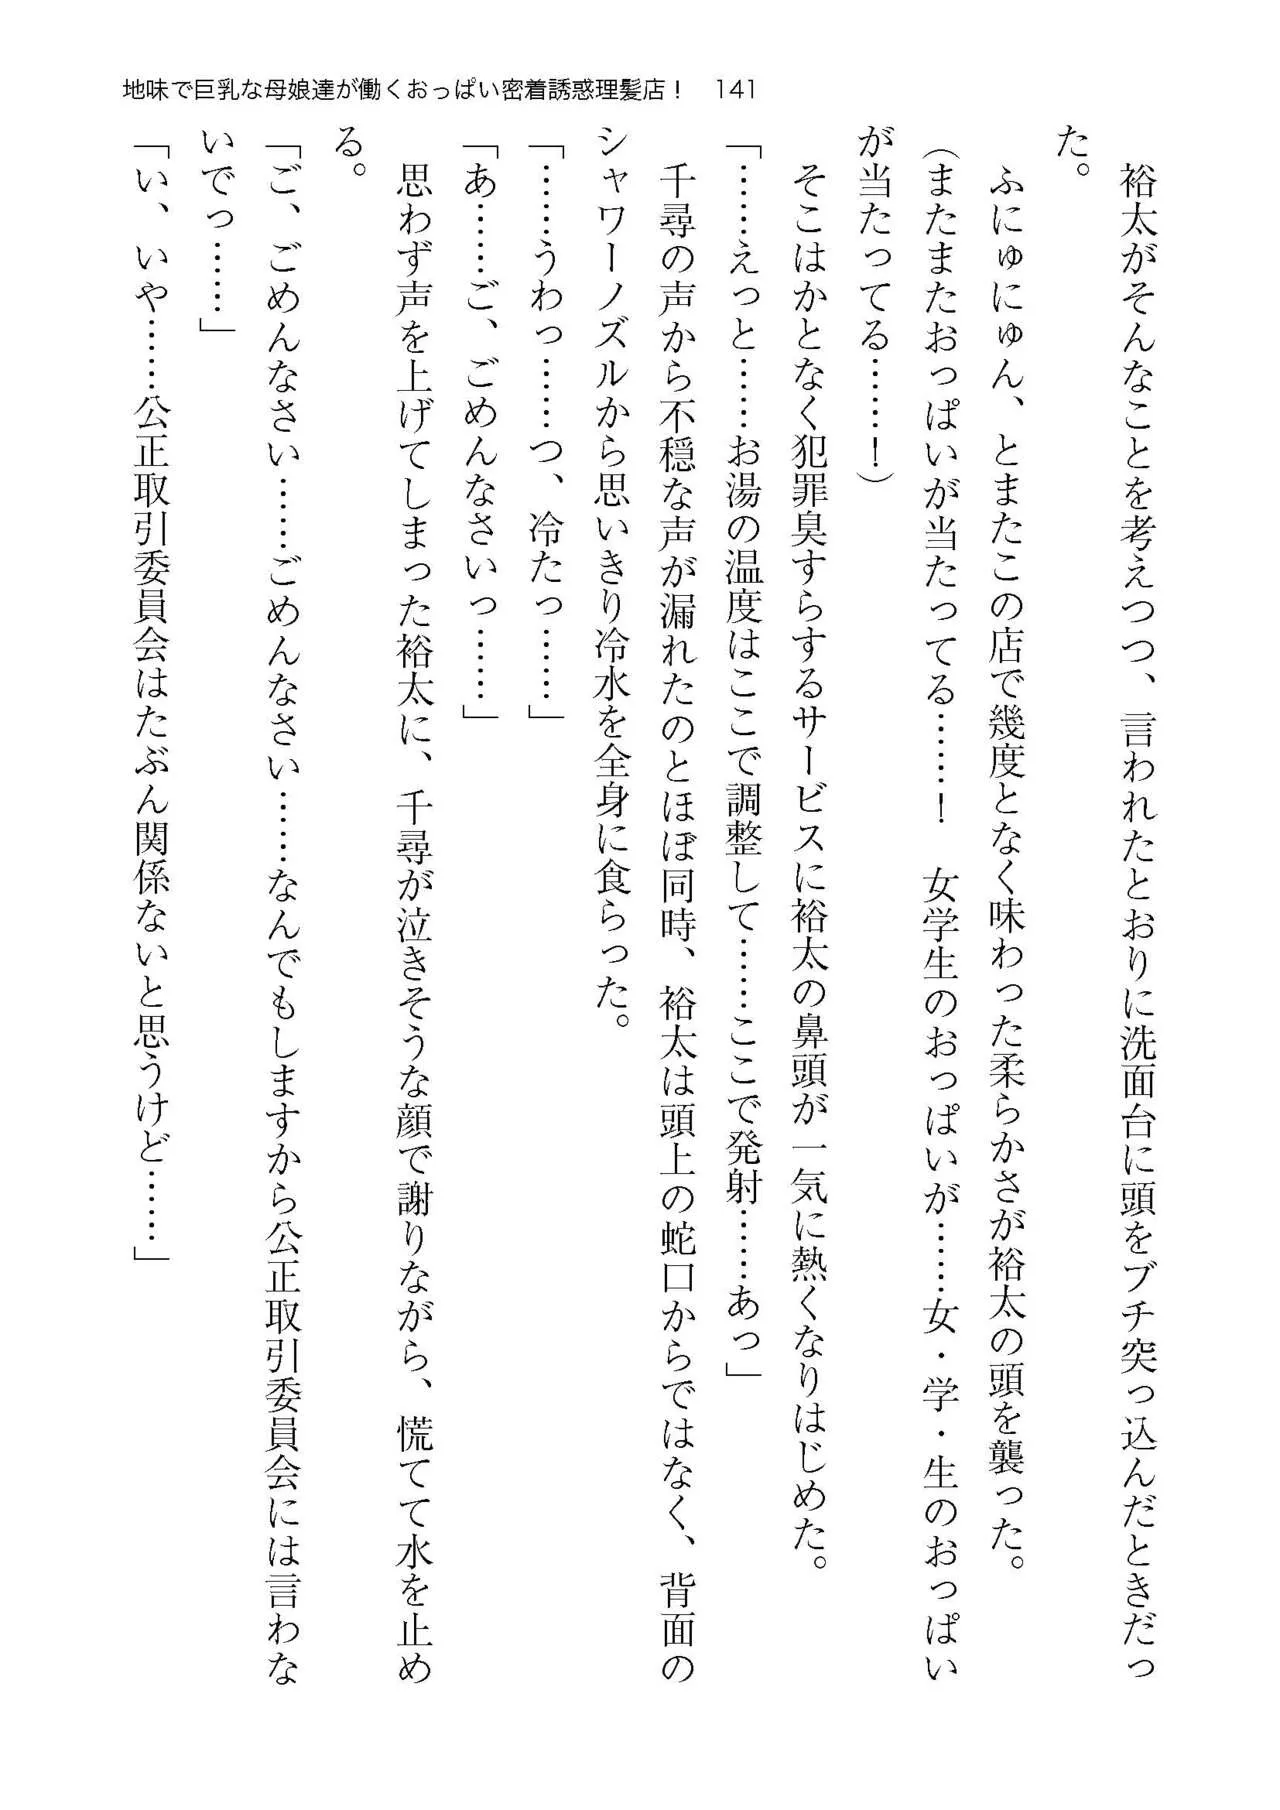 地味で巨乳な母娘達が働くおっぱい密着誘惑理髪店！　141
　裕太がそんなことを考えつつ、言われたとおりに洗面台に頭をブチ突っ込んだときだっ
た。
　ふにゅにゅん、とまたこの店で幾度となく味わった柔らかさが裕太の頭を襲った。
（またまたおっぱいが当たってる……！　女学生のおっぱいが……女・学・生のおっぱい
が当たってる……！）
　そこはかとなく犯罪臭すらするサービスに裕太の鼻頭が一気に熱くなりはじめた。
「……えっと……お湯の温度はここで調整して……ここで発射……あっ」
　千尋の声から不穏な声が漏れたのとほぼ同時、裕太は頭上の蛇口からではなく、背面の
シャワーノズルから思いきり冷水を全身に食らった。
「……うわっ……つ、冷たっ……」
「あ……ご、ごめんなさいっ……」
　思わず声を上げてしまった裕太に、千尋が泣きそうな顔で謝りながら、慌てて水を止め
る。
「ご、ごめんなさい……ごめんなさい……なんでもしますから公正取引委員会には言わな
いでっ……」
「い、いや……公正取引委員会はたぶん関係ないと思うけど……」